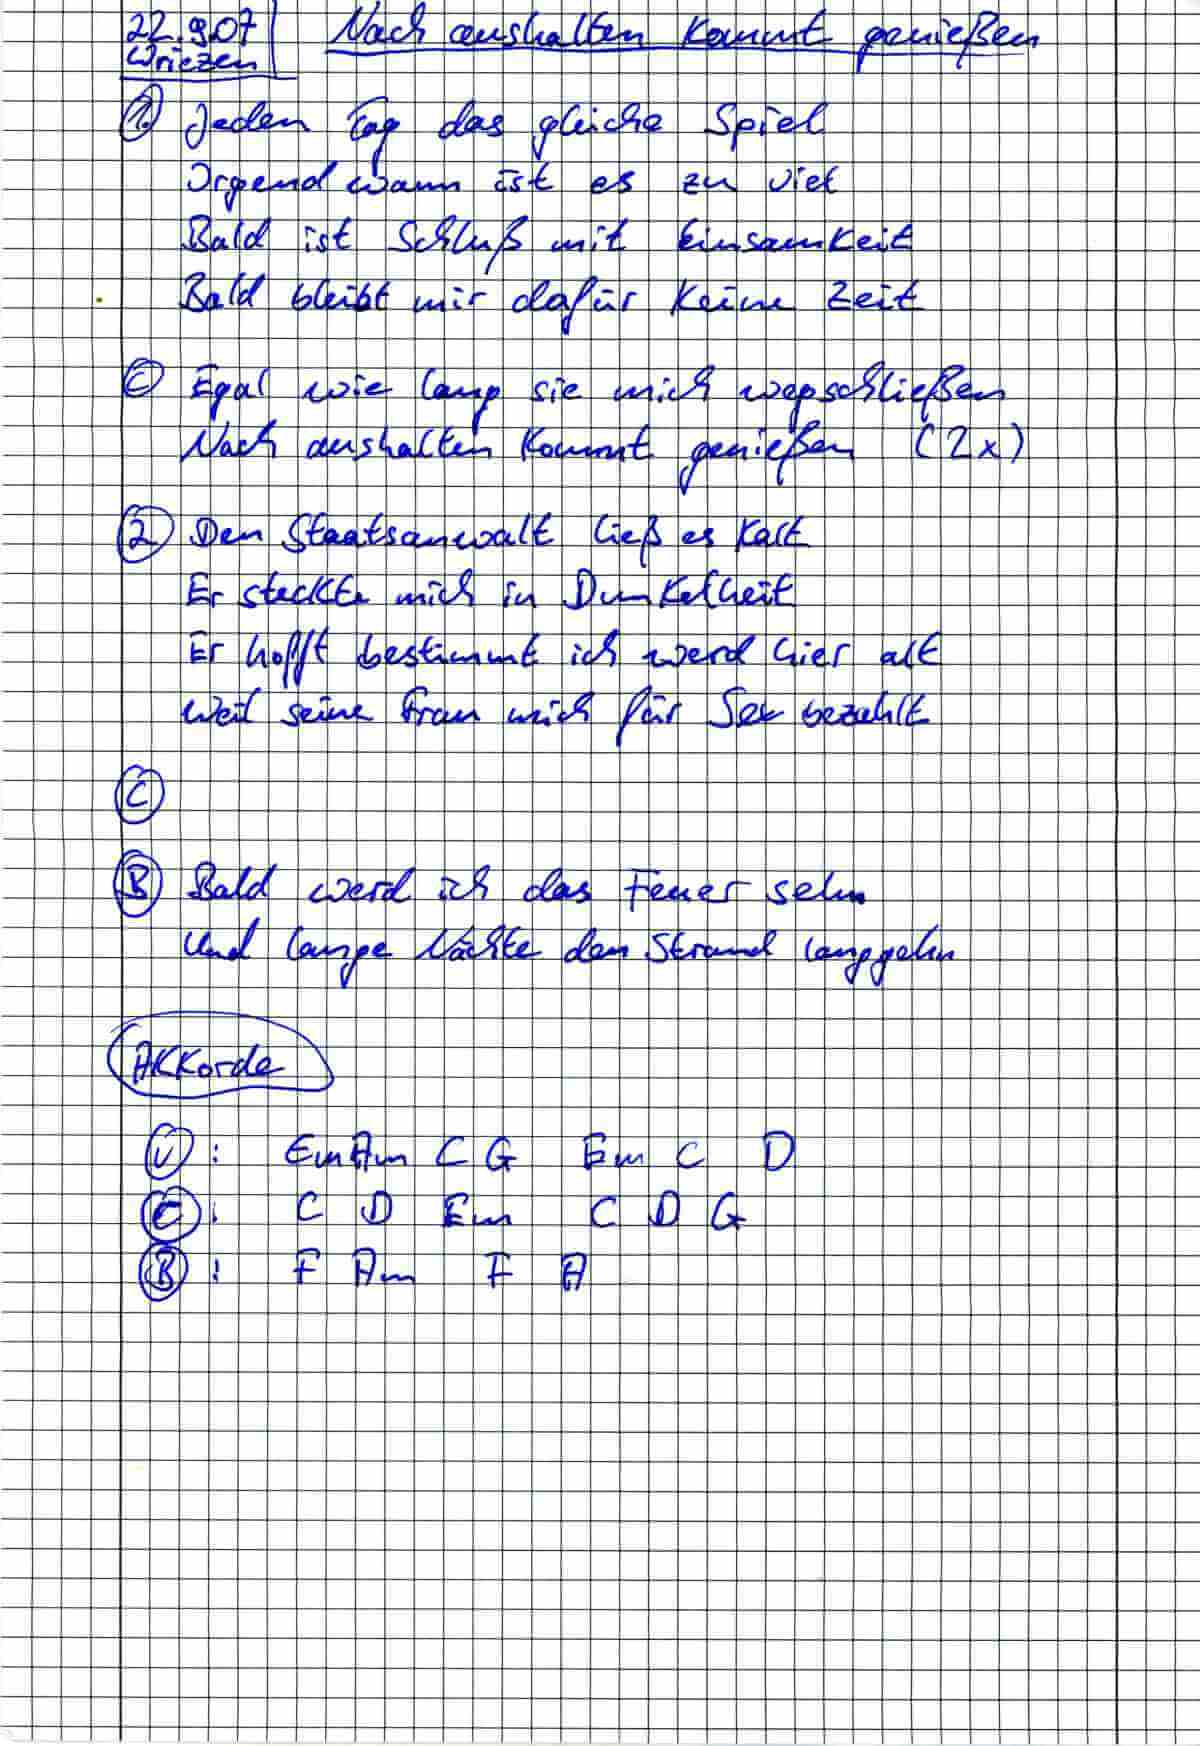 22.9.07 Nach aushalten kommt genießen
Wriezen
1. Jeden Tag das gleiche Spiel
Irgendwann ist es zu viel
Bald ist Schluß mit Einsamkeit
Bald bleibt mir dafür keine Zeit
C Egal wie lang sie mich wegschließen
Nach aushalten kommt genießen (2x)
2 Den Staatsanwalt ließ es kalt
Er steckte mich in Dunkelheit
Er hofft bestimmt ich werd hier alt
Weil seine Frau mich für Sex bezahlt
C
B Bald werd ich das Feuer sehn
Und lange Nächte den Strand langgehn
Akkorde
V: Em Am C G Em C D
C: C D Em C D G
B: F Am F A